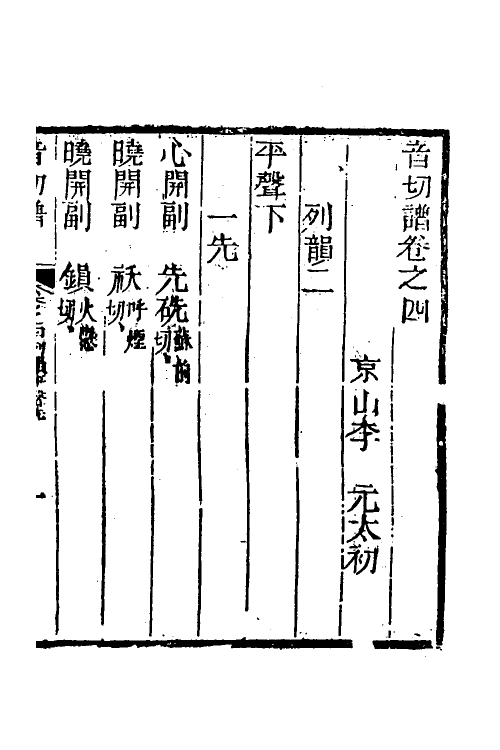 音切譜卷之四
京山李 元太初
列韻二
平聲下
一先
心開副 先 先蘇前切
曉開副 祆呼煙切
曉開副 鎖火懸切
音切譜